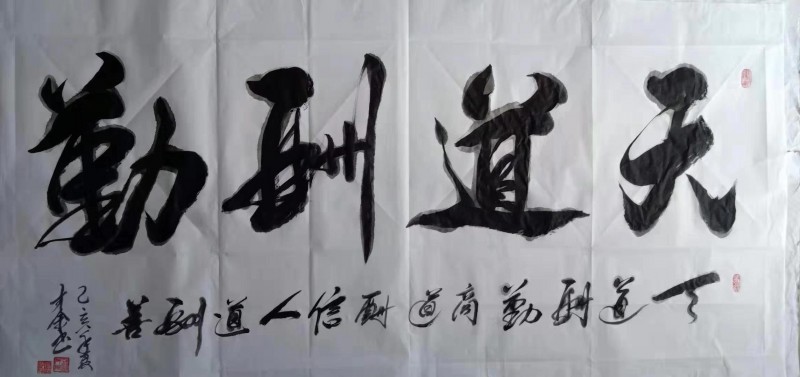 天道酬勤
天道酬勤商道酬信人道酬善
己亥年